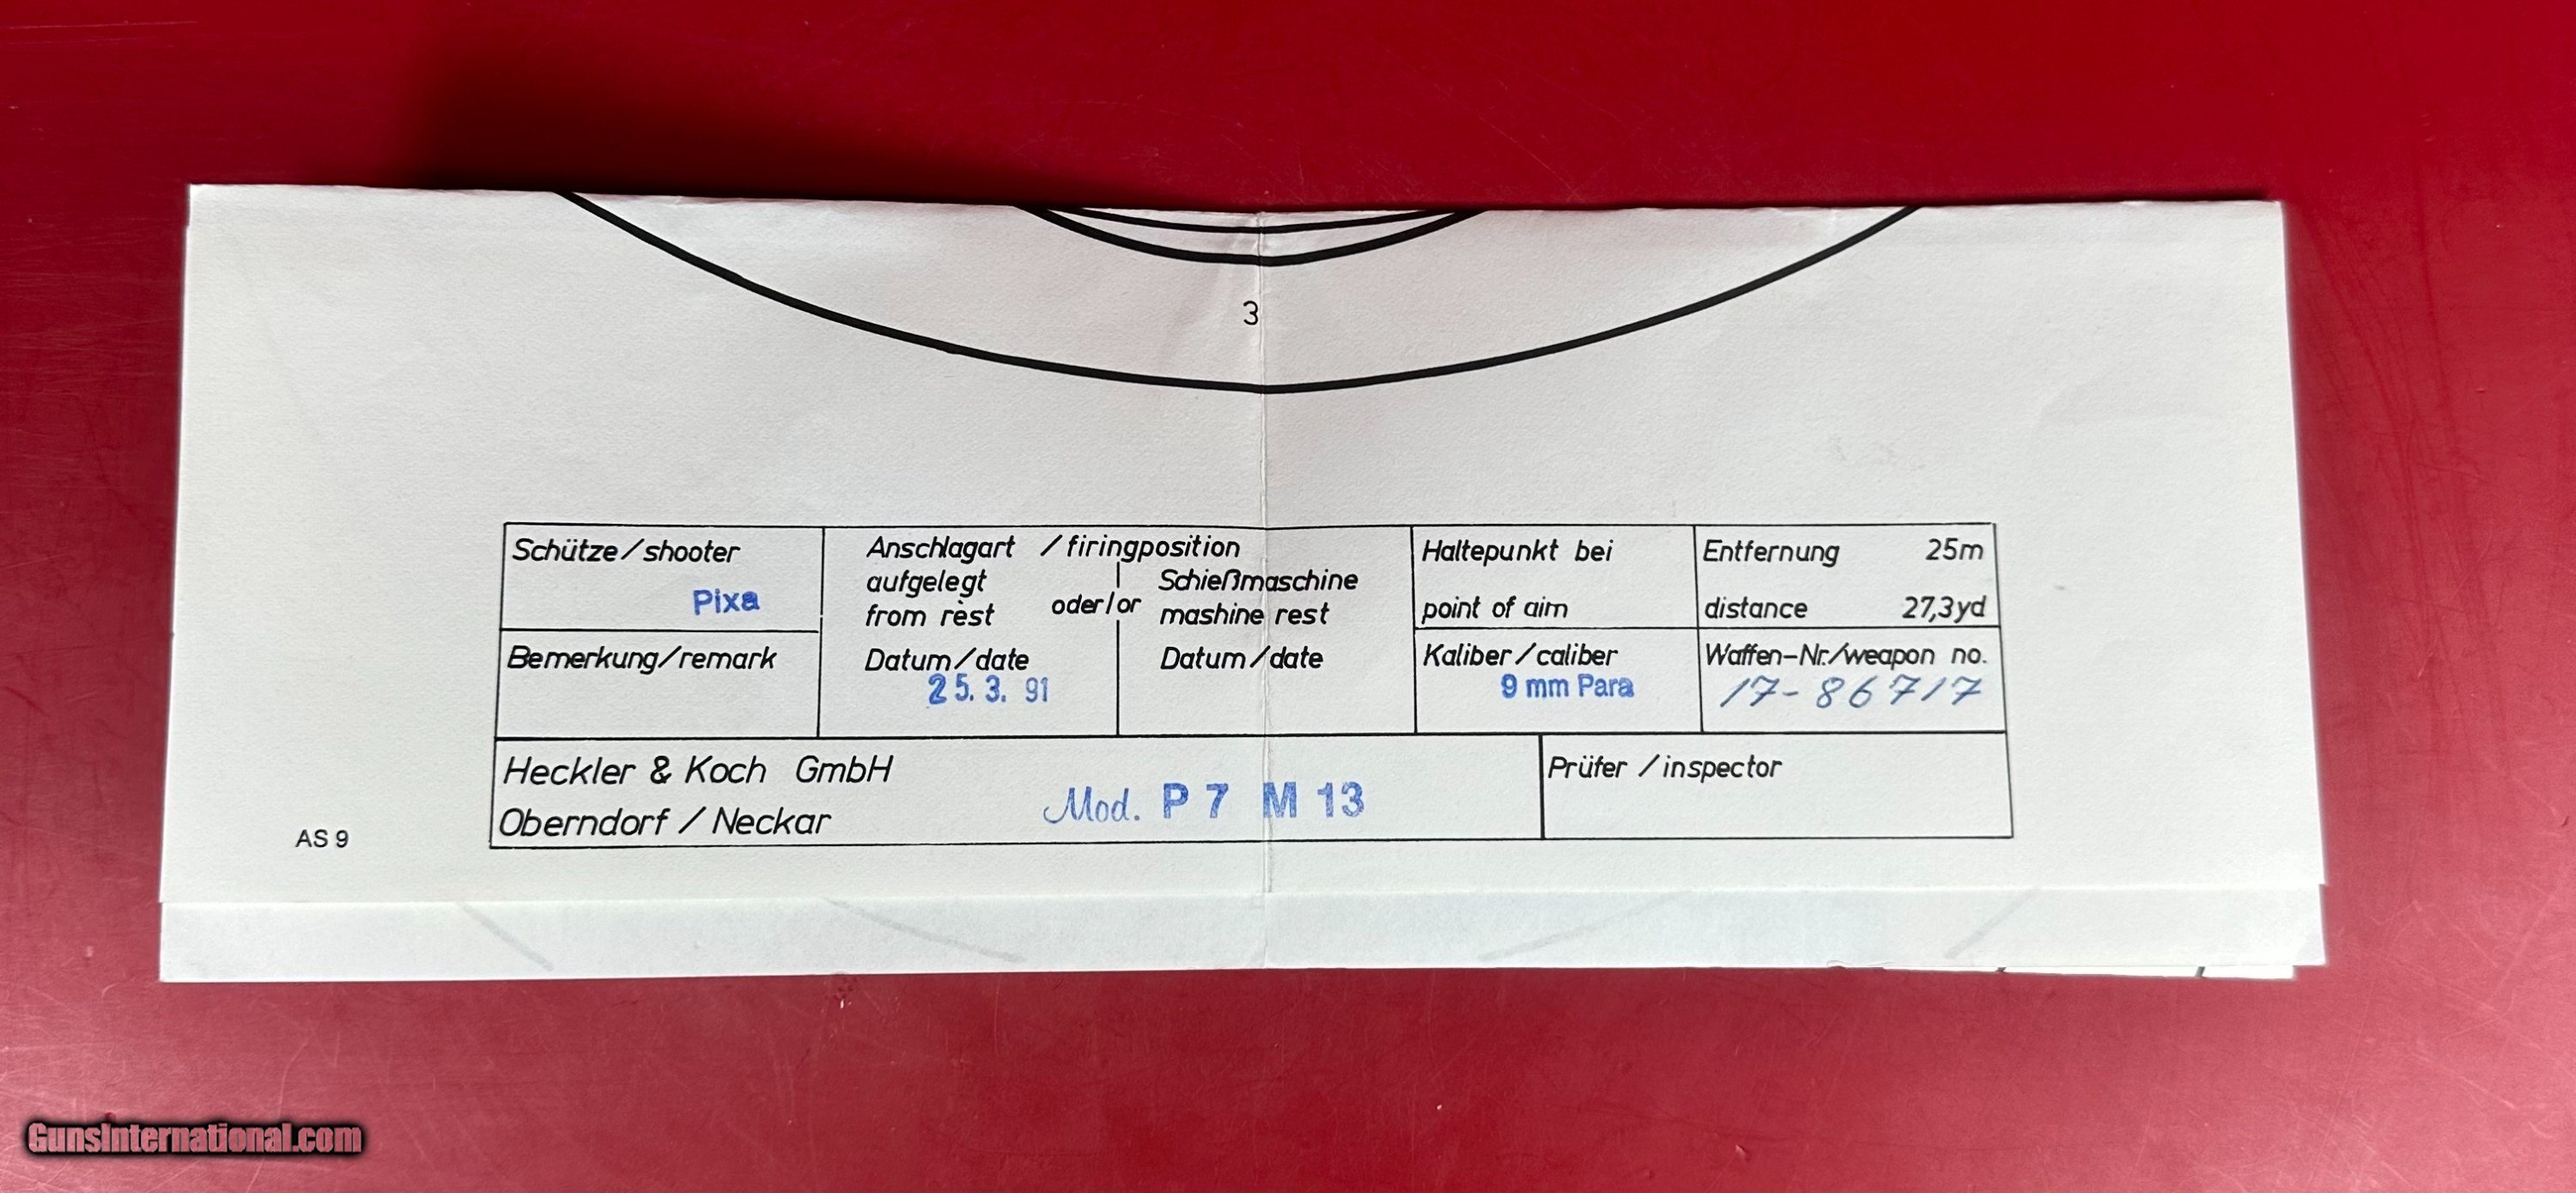 3
Schütze/shooter
Pixa
Anschlagart /firingposition
aufgelegt
from rest
oder/or
Schießmaschine
mashine rest
Haltepunkt bei
point of aim
Entfernung 25m
distance 27,3yd
Bemerkung/remark
Datum/date
25. 3. 91
Datum/date
Kaliber/caliber
9 mm Para
Waffen-Nr./weapon no.
17-86717
Heckler & Koch GmbH
Oberndorf / Neckar
Mod. P 7 M 13
Prüfer /inspector
AS 9
GunsInternational.com